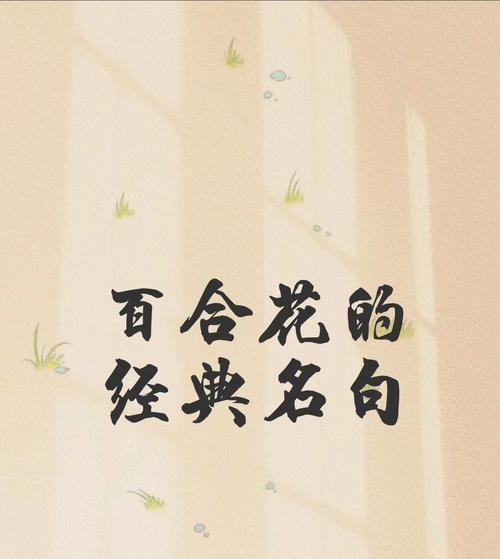 百合花的
经典名句